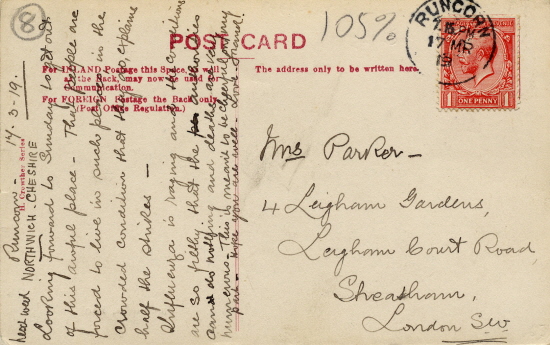 8
105%
POST CARD
For INLAND Postage this Space, as well
as the Back, may now be used for
Communication.
For FOREIGN Postage the Back only.
(Post Office Regulation.)
The address only to be written here.
H. Crowther Series
RUNCORN
17 MR
19
1 ONE PENNY 1
Runcorn - 17-3-19.
next week NORTHWICH, CHESHIRE
Looking forward to Sunday to get out
of this awful place - The people are
forced to live in such places in the
crowded condition that they explains
half the strikes -
Influenza is raging and the conditions
are so filthy that the authorities
can do nothing and deaths are very
numerous. This meant to be cheery looking
part - Hope you are well - Love
Mrs Parker -
4 Leigham Gardens,
Leigham Court Road
Streatham,
London SW